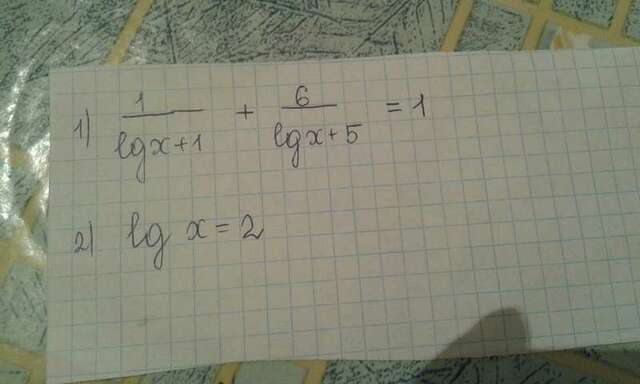 1) 1/(lg x + 1) + 6/(lg x + 5) = 1
2) lg x = 2